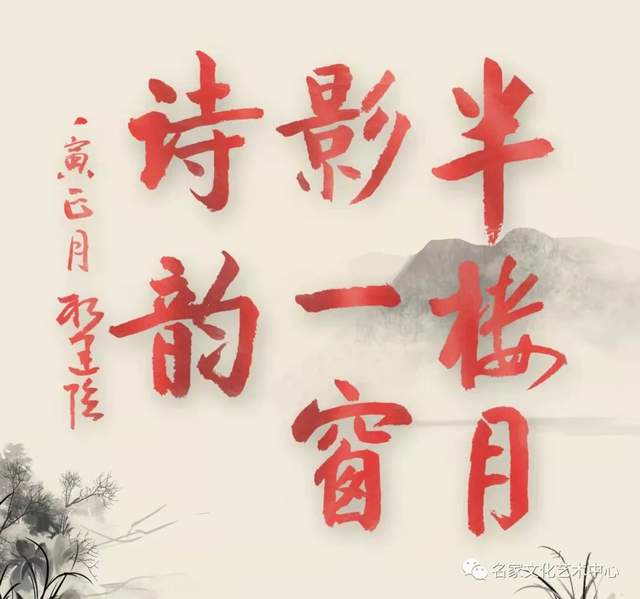 半楼月
影一窗
诗韵
寅正月
名家文化艺术中心